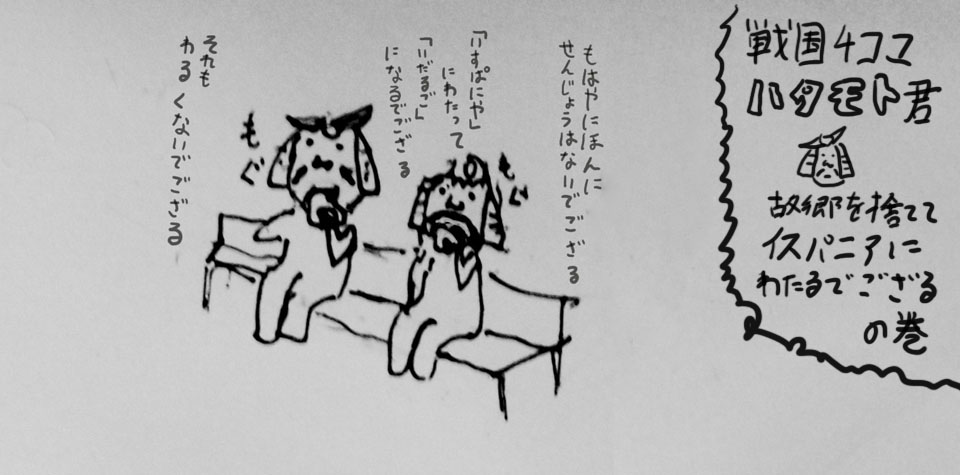 戦国4コマ
ハタモト君
故郷を捨てて
イスパニアに
わたるでござる
の巻
もはやにほんに
せんじょうはないでござる
「いすぱにや」
にわたって
「いだるご」
になるでござる
それも
わるくないでござる
もぐ
もぐ